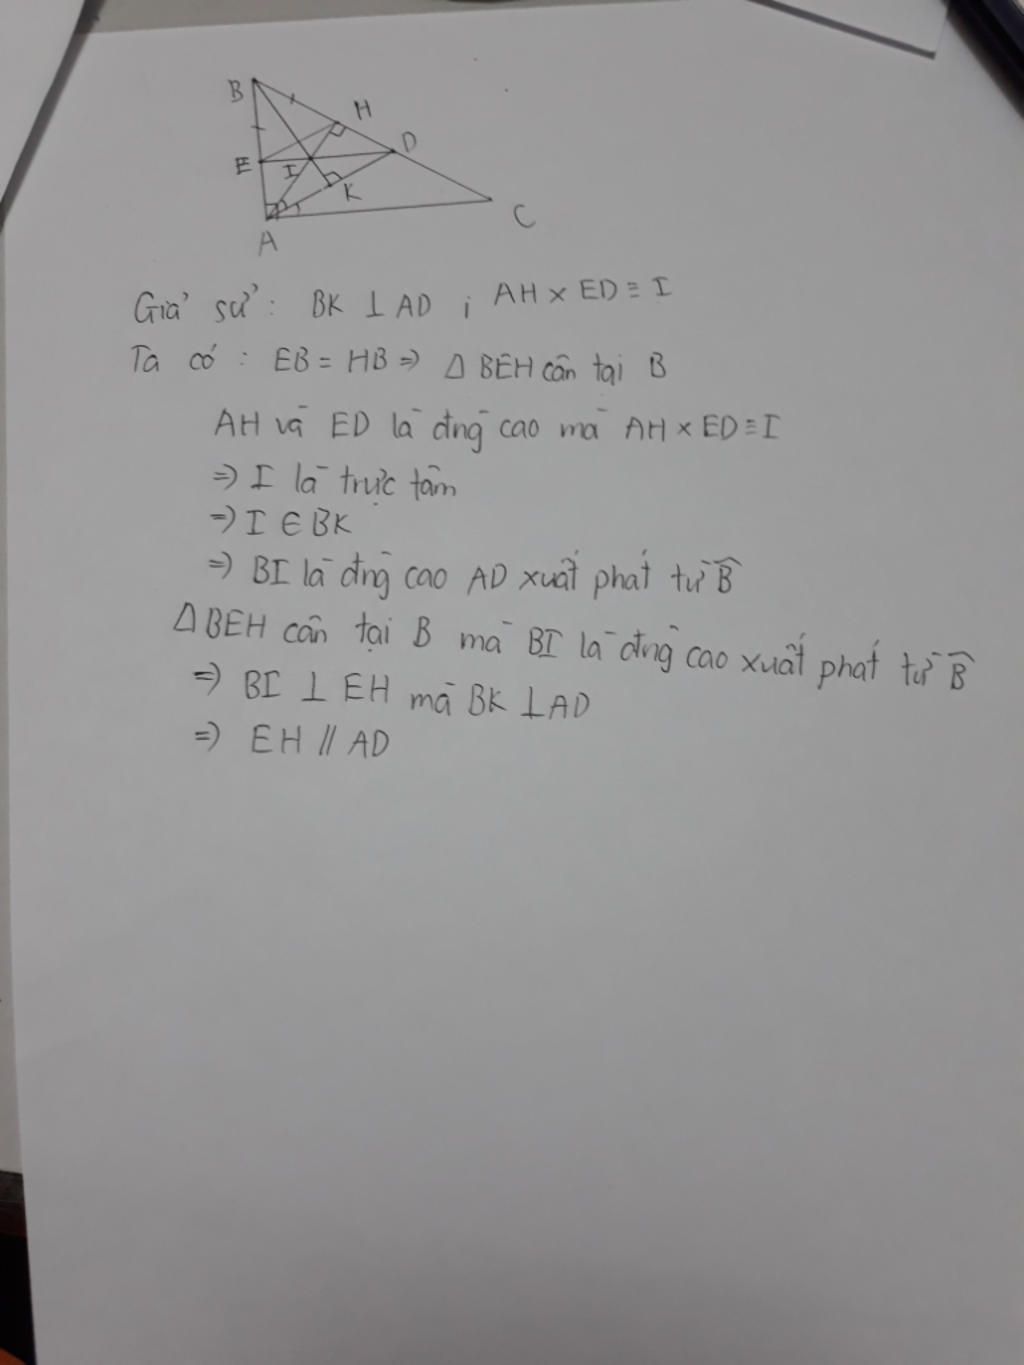 B
H
D
E
I
K
C
A
Giả sử : BK ⊥ AD ; AH × ED ≡ I
Ta có : EB = HB ⇒ Δ BEH cân tại B
AH và ED là đng̀ cao mà AH × ED ≡ I
⇒ I là trực tâm
⇒ I ∈ BK
⇒ BI là đng̀ cao AD xuất phát từ B̂
Δ BEH cân tại B mà BI là đng̀ cao xuất phát từ B̂
⇒ BI ⊥ EH mà BK ⊥ AD
⇒ EH // AD